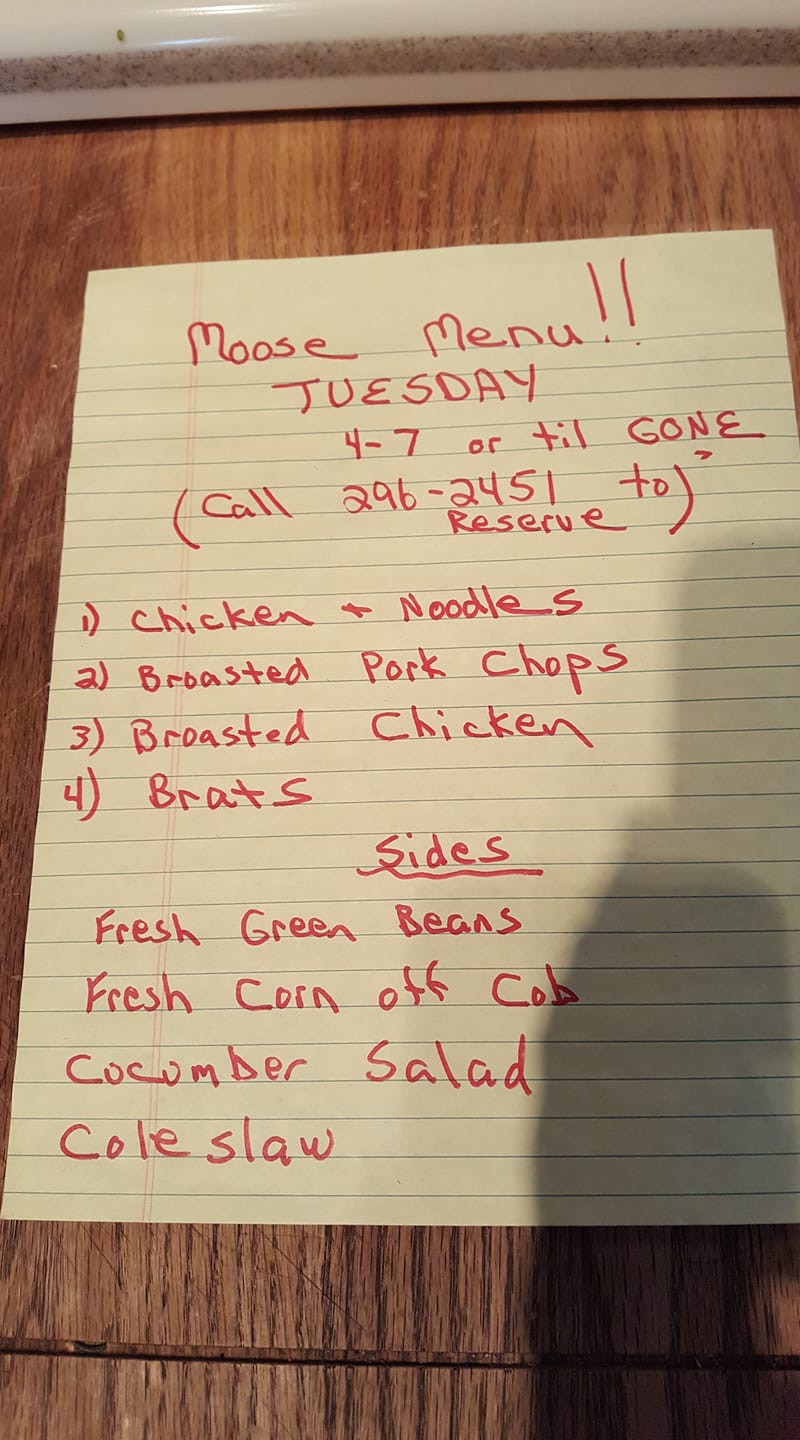 Moose Menu!!
TUESDAY
4-7 or til GONE
(Call 296-2451 to)
Reserve
1) Chicken + Noodles
2) Broasted Pork Chops
3) Broasted Chicken
4) Brats
Sides
Fresh Green Beans
Fresh Corn off Cob
Cocomber Salad
Coleslaw